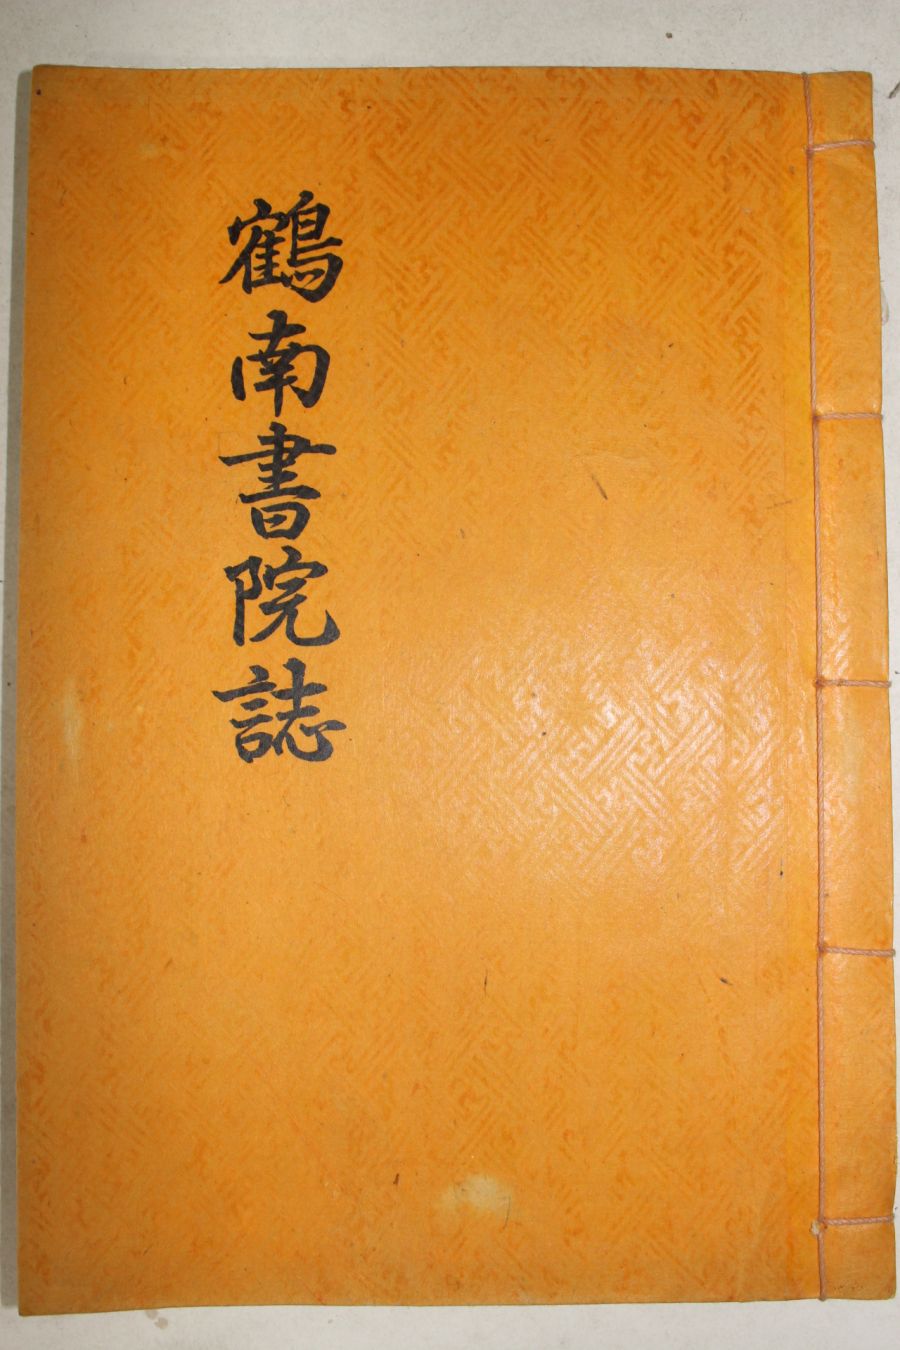 鶴南書院誌